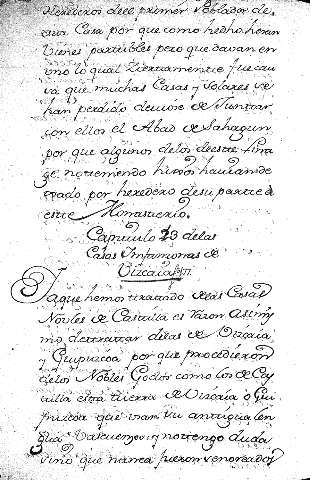 Herederos de el primer Poblador de
esta Casa por que como hecho heran
Vienes partibles pero que davan en
uno lo qual Ziertamente fue cau
sa que muchas Casas y Solares se
han perdido demose de Juntar
con ellos el Abad de Sahagun
por que algunos de los de este lina
ge no teniendo hijos havian de
xado por heredero de su parte a
este Monasterio.
Capitulo 23 de las
Casas Infanzonas de
Vizcaia
Ya que hemos tratado de las Casas
Nobles de Castilla es razon asimis
mo de tratar de las de Vizcaia,
y Guipuzcoa por que procedieron
de los Nobles Godos como los de Cas
tilla esta tierra de Vizcaia o Gui
puzcoa que usan su antigua len
gua Vascuence y no tengo duda
sino que nunca fueron Senoreados